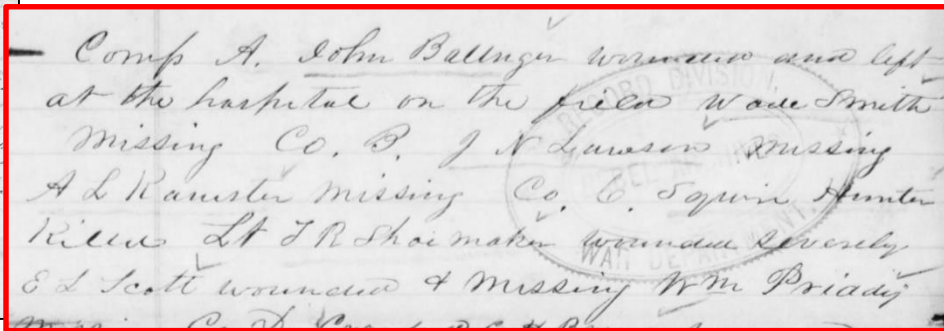 Comp A. John Ballnger wounded and left
at the hospital on the field Wade Smith
Missing Co. B. J N Lawson Missing
A L Missing Co. C. Squire Hunter
Killed Lt T R Shoimaker wounded severely
E L Scott wounded & Missing Wm Priady
Co. D.
RECORD DIVISION,
WAR DEPARTMENT.